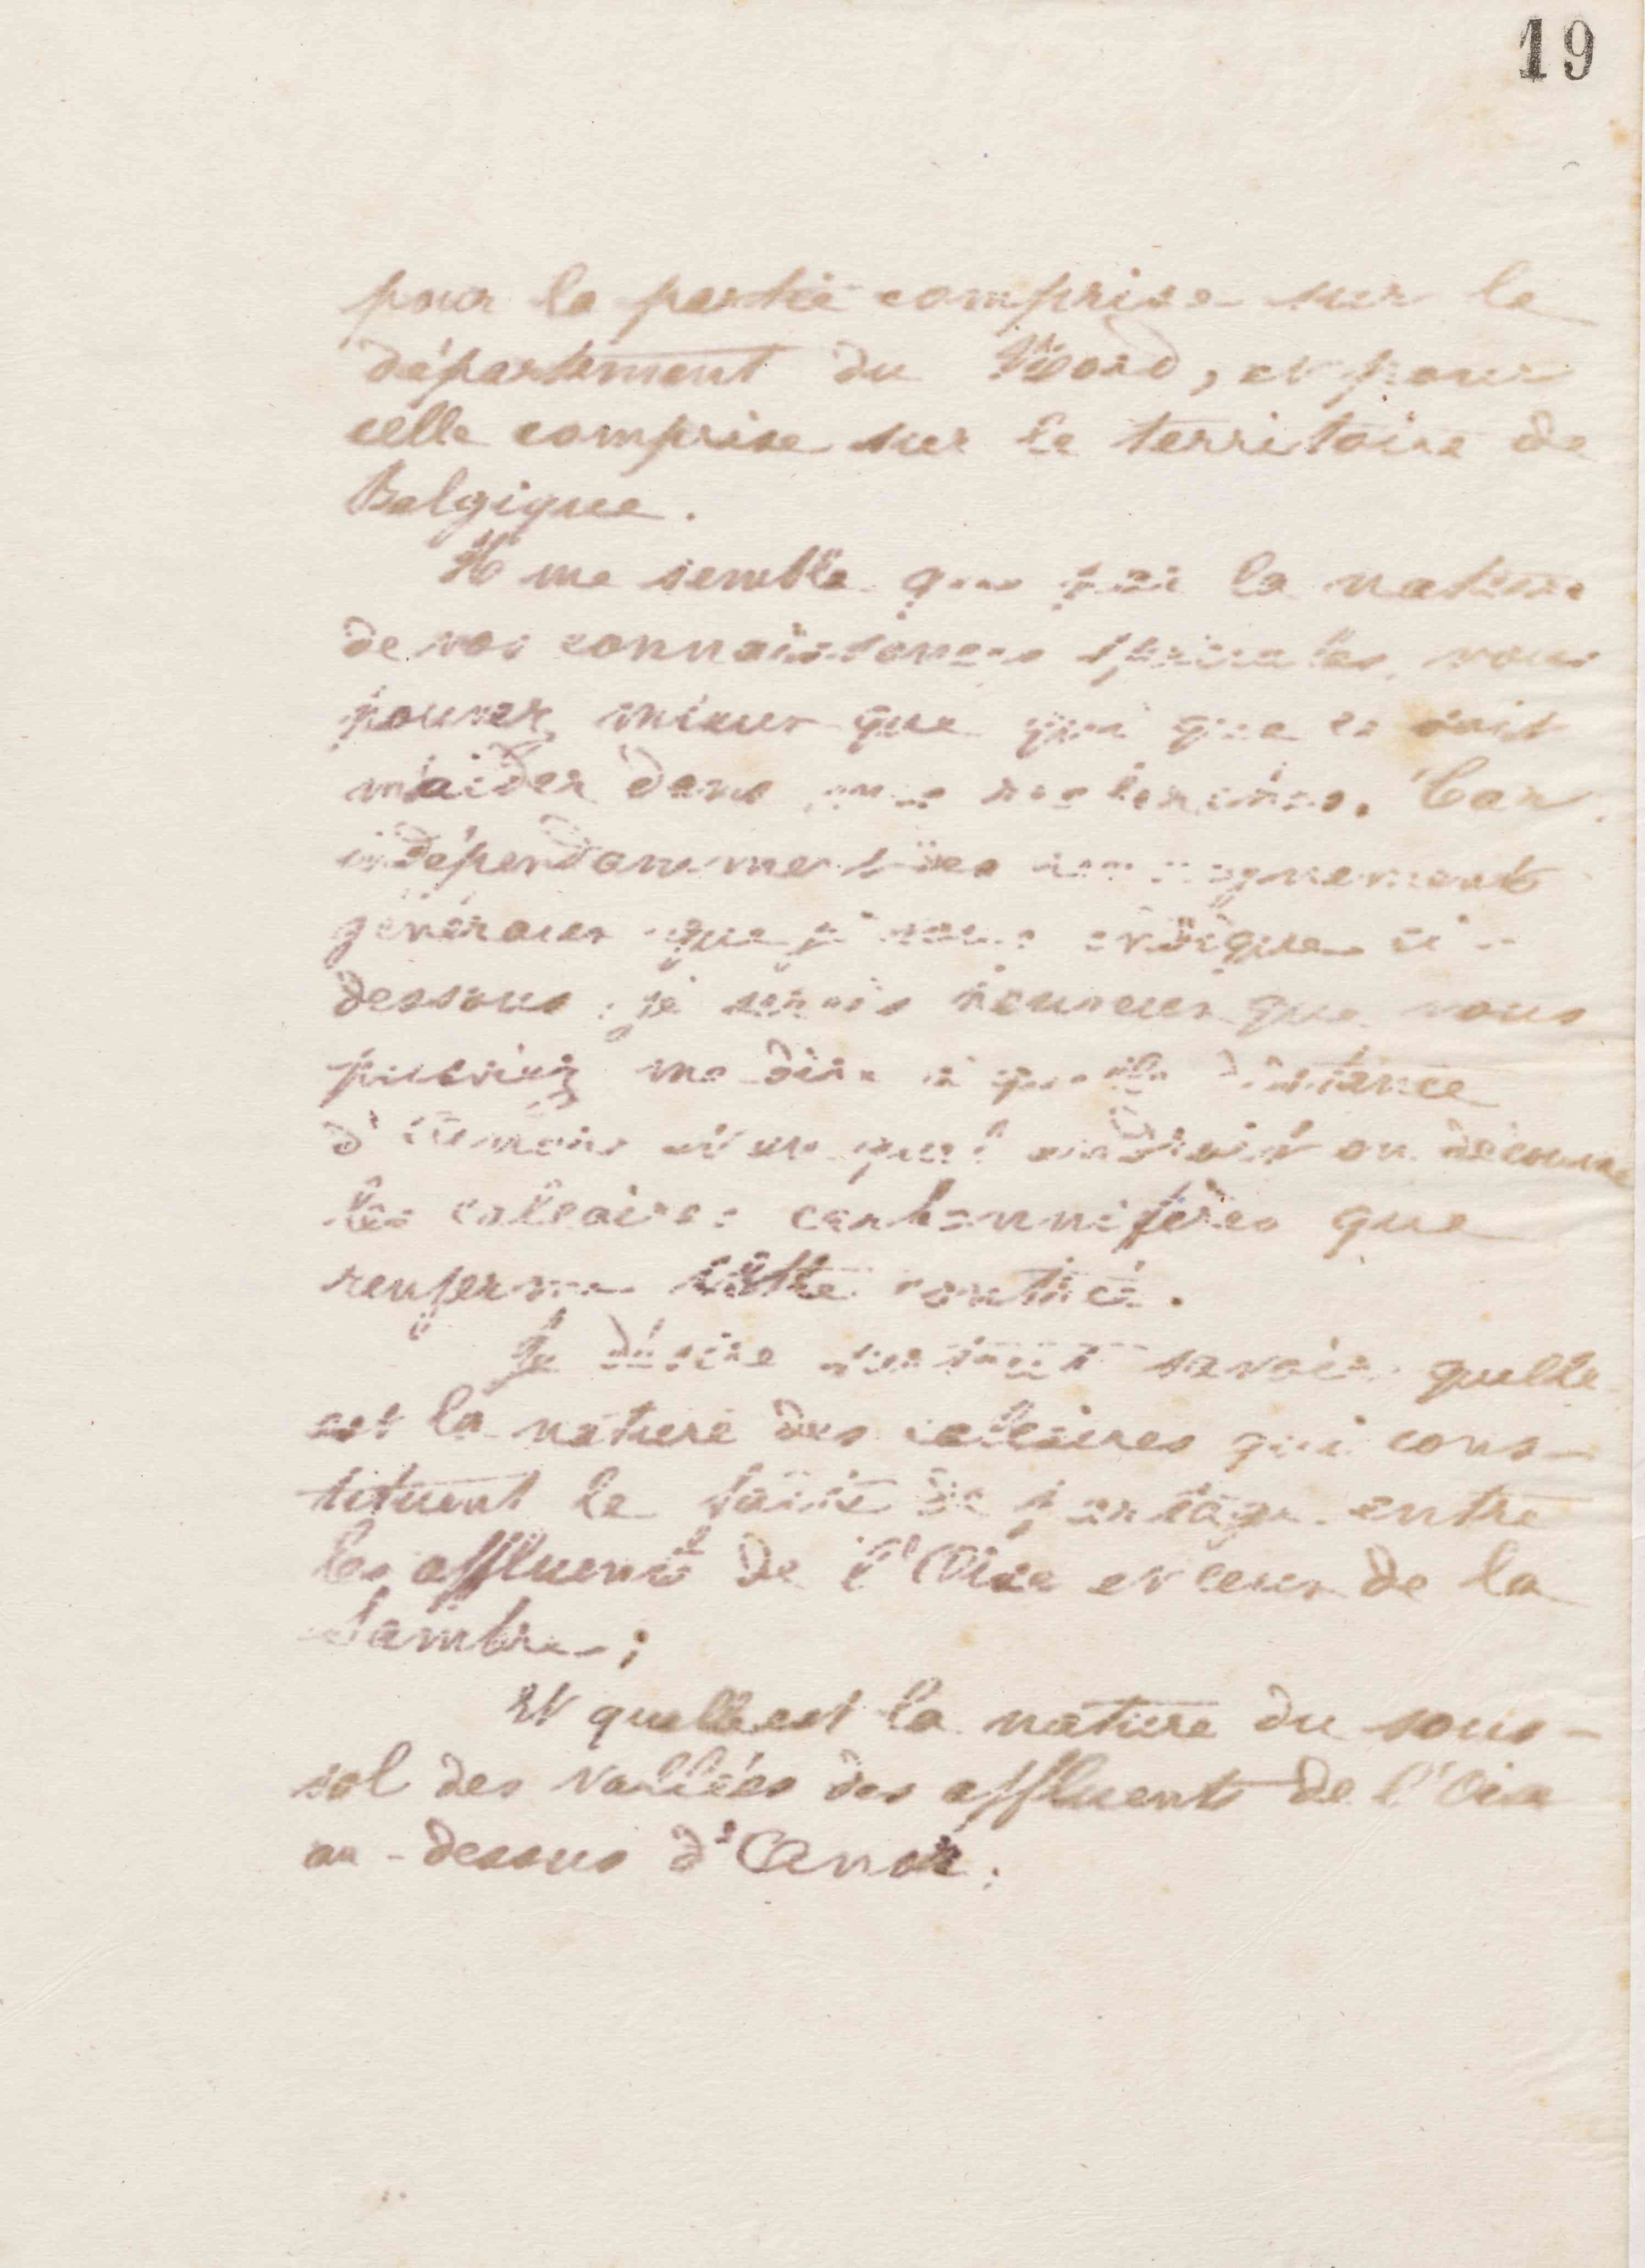 19
pour la partie comprise sur le
département du Nord, et pour
celle comprise sur le territoire de
Belgique.
Il me semble que par la nature
de vos connaissances spéciales, vous
pouvez mieux que qui que ce soit
m'aider dans mes recherches. Car
indépendamment des renseignements
généraux que je vous indique ci-
dessous, je serais heureux que vous
puissiez me dire à quelle distance
d' et sur quel endroit on découvre
les calcaires carbonnifères que
renferme cette contrée.
Je désire surtout savoir quelle
est la nature des calcaires qui cons-
tituent le faîte de partage entre
les affluents de l'Oise et ceux de la
Sambre;
Et quelle est la nature du sous-
sol des vallées des affluents de l'Oise
au-dessus d'Anor.